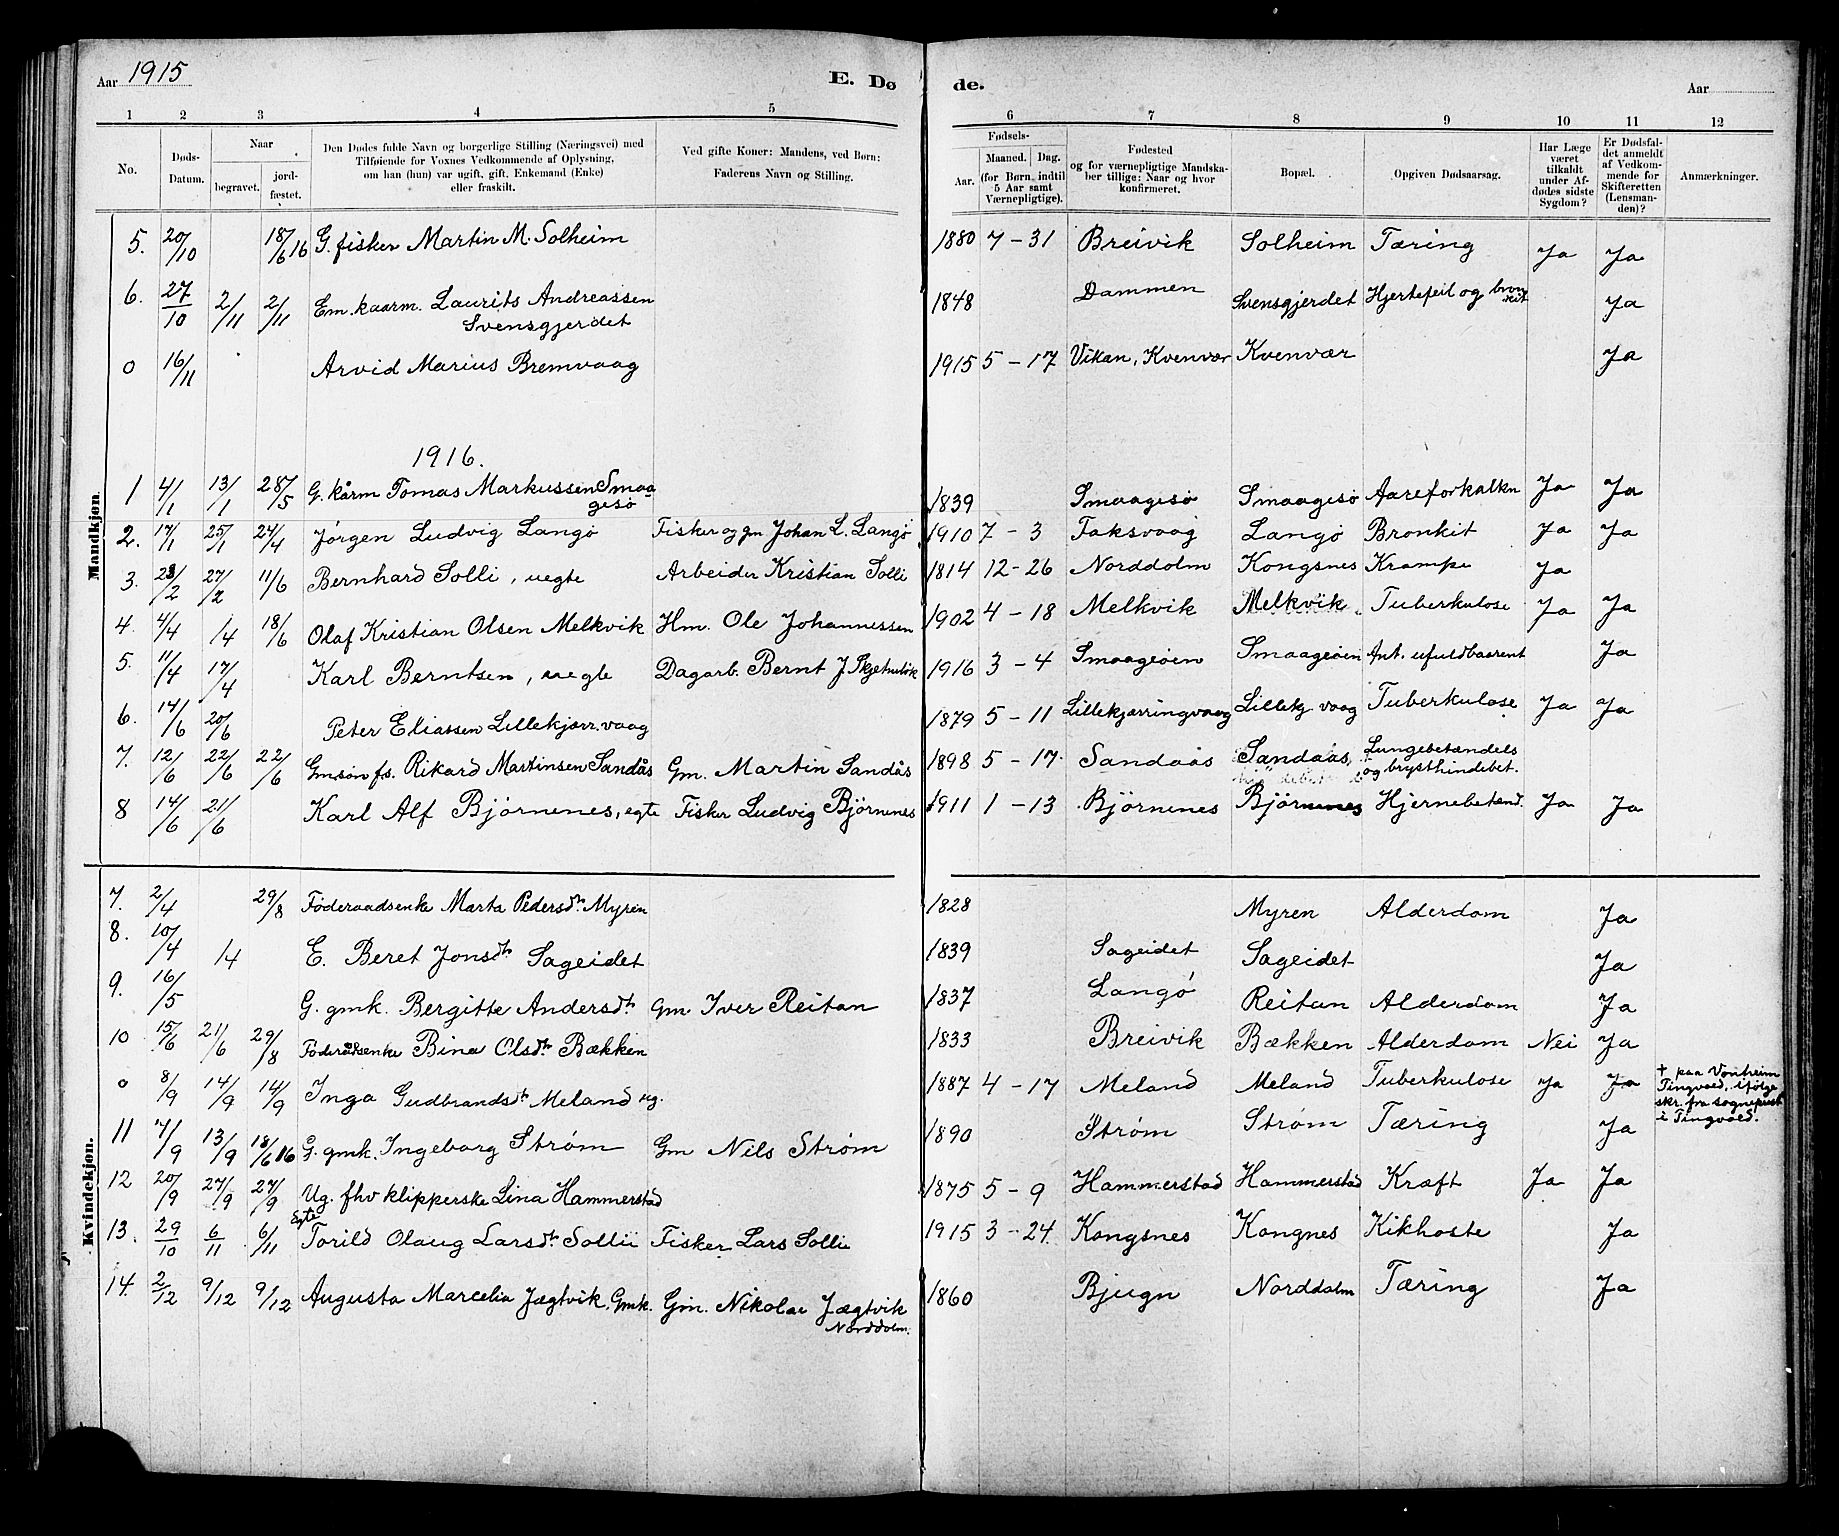 Aar 1915 E. Døde. Aar
1 2 3 4 5 6 7 8 9 10 11 12
No. Døds-Datum. Naar begravet. jordfæstet. Den Dødes fulde Navn og borgerlige Stilling (Næringsvei) med Tilføiende for Voxnes Vedkommende af Oplysning, om han (hun) var ugift, gift, Enkemand (Enke) eller fraskilt. Ved gifte Koner: Mandens, ved Børn: Faderens Navn og Stilling. Fødsels- Aar. Maaned. Dag. (for Børn indtil 5 Aar samt Værnepligtige). Fødested og for værnepligtige Mandskaber tillige: Naar og hvor konfirmeret. Bopæl. Opgiven Dødsaarsag. Har Læge været tilkaldt under Afdødes sidste Sygdom? Er Dødsfaldet anmeldt af Vedkommende for Skifteretten (Lensmanden)? Anmærkninger.
Mandkjøn.
5. 20/10 18/6 16 G. fisker Martin M. Solheim 1880 7 - 31 Breivik Solheim Tæring Ja Ja
6. 27/10 2/11 2/11 Em. kaarm. Laurits Andreassen Svensgjerdet 1848 Dammen Svensgjerdet Hjertefeil og bronkit Ja
0 16/11 Arvid Marius Bremvaag 1915 5 - 17 Vikan, Kvenvær Kvenvær Ja
1916.
1 4/1 13/1 28/5 G. kårm Tomas Markussen Smaagesø 1839 Smaagesø Smaagesø Aareforkalkn Ja Ja
2. 17/1 25/1 24/4 Jørgen Ludvig Langø Fisker og gm Johan L. Langø 1910 7 - 3 Faksvaag Langø Bronkit Ja Ja
3. 23/2 27/2 11/6 Bernhard Solli, uegte Arbeider Kristian Solli 1814 12 - 26 Norddolm Kongsnes Krampe Ja
4. 4/4 14 18/6 Olaf Kristian Olsen Melkvik Hm. Ole Johannessen 1902 4 - 18 Melkvik Melkvik Tuberkulose Ja Ja
5. 11/4 17/4 Karl Berntsen, uegte Dagarb. Bernt J. 1916 3 - 4 Smaageøen Smaageøen Ant. ufuldbaarent Ja
6. 14/6 20/6 Peter Eliassen Lillekjørr.vaag 1879 5 - 11 Lillekjærringvaag Lillekj vaag Tuberkulose Ja Ja
7. 12/6 22/6 22/6 Gmsøn fs. Rikard Martinsen Sandås Gm. Martin Sandås 1898 5 - 17 Sandaas Sandaas Lungebetændels og brysthindebet.
8 14/6 21/6 Karl Alf Bjørnenes, egte Fisker Ludvig Bjørnenes 1911 1 - 13 Bjørnenes Bjørnenes Hjernebetænd. Ja Ja
Kvindekjøn.
7. 2/4 29/8 Føderaadsenke Marta Pedersdtr Myren 1828 Myren Alderdom Ja
8. 10/4 14 E. Beret Jonsdtr Sageidet 1839 Sageidet Sageidet Ja
9. 16/5 G. gmk. Bergitte Andersdtr Gm Iver Reitan 1837 Langø Reitan Alderdom Ja
10 15/6 21/6 29/8 Føderaadsenke Bina Olsdtr Bækken 1833 Breivik Bækken Alderdom Nei Ja
0 8/9 14/9 14/9 Inga Gudbrandsdtr Meland ug. 1887 4 - 17 Meland Meland Tuberkulose Ja Ja + paa Vonheim Tingvold, ifølge skr. fra sogneprest i Tingvold.
11 7/9 13/9 18/6 16 G. gmk. Ingeborg Strøm Gm Nils Strøm 1890 Strøm Strøm Tæring Ja
12 20/9 27/9 27/9 Ug. fhv klipperske Lina Hammerstad 1875 5 - 9 Hammerstad Hammerstad Kræft Ja Ja
13. 29/10 6/11 6/11 Egte Torild Olaug Larsdtr Solli Fisker Lars Solli 1915 3 - 24. Kongsnes Kongnes Kikhoste Ja
14. 2/12 9/12 9/12 Augusta Marcelia Jægtvik, Gmk. Gm. Nikolai Jægtvik Norddolm. 1860 Bjugn Norddolm Tæring Ja